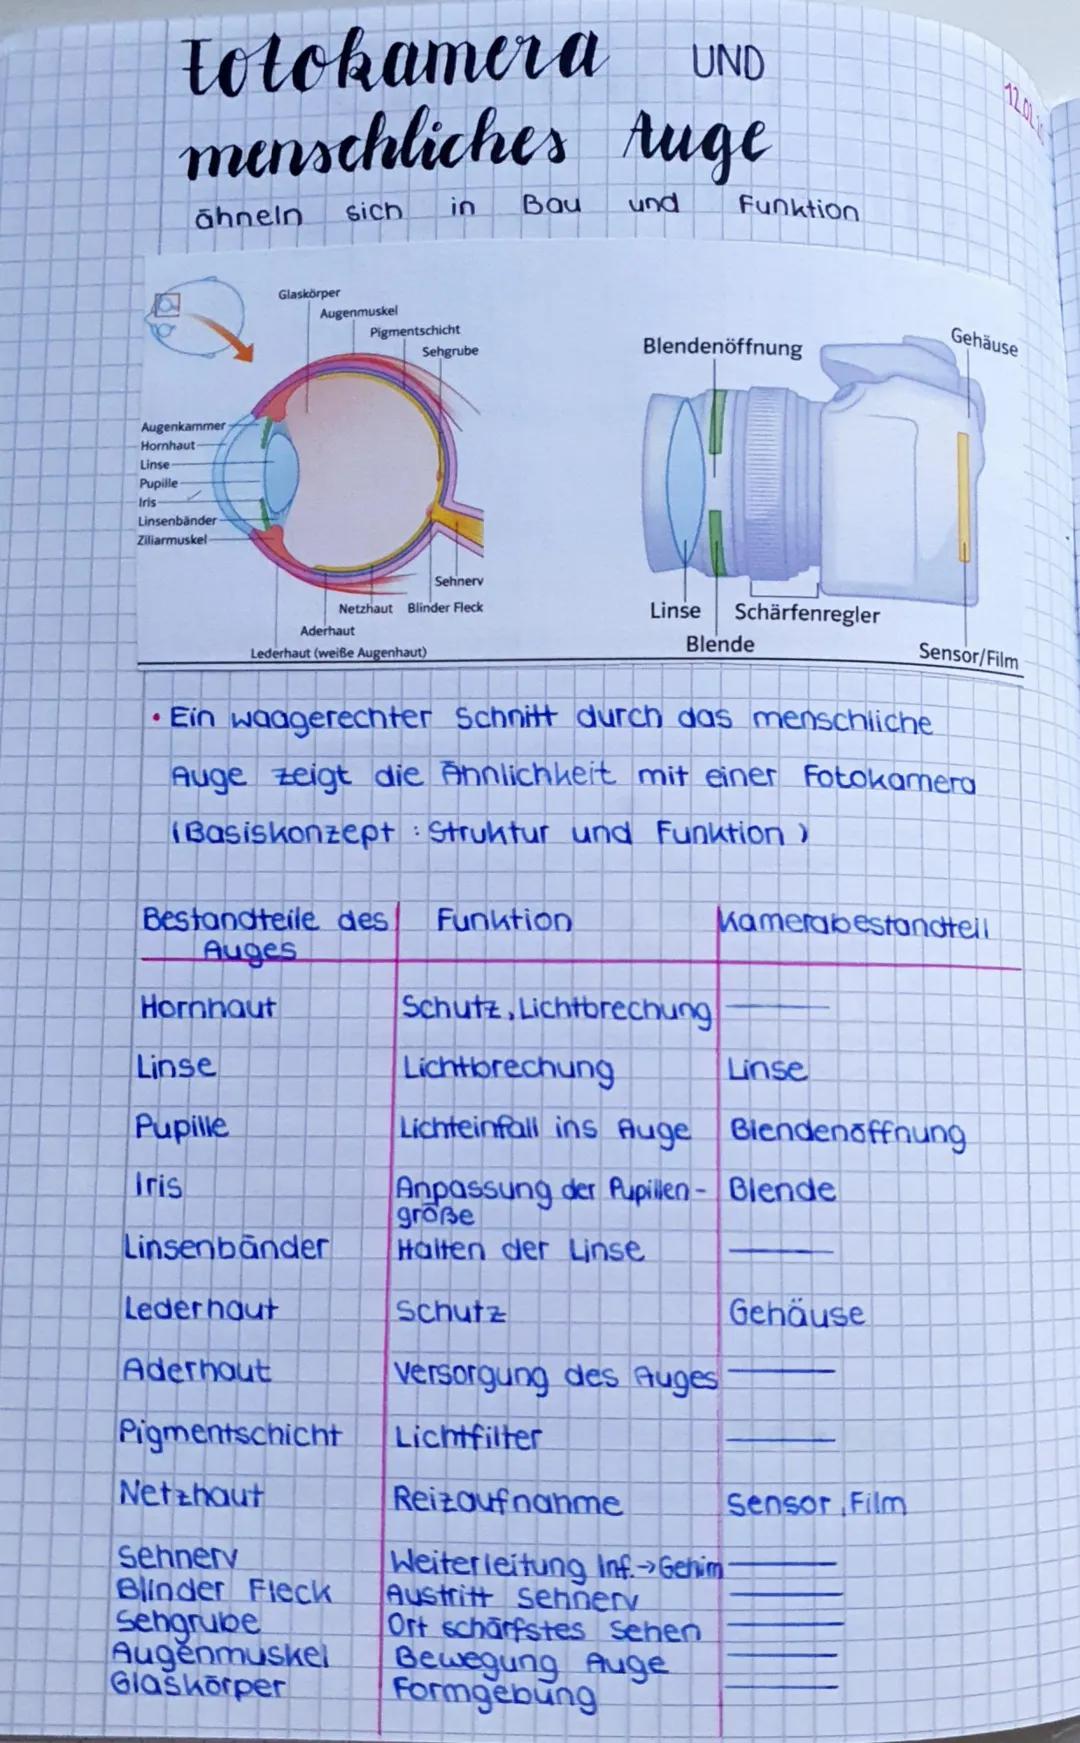 Fotokamera UND
menschliches Auge
ähneln sich in Bau und Funktion
Glaskörper
Augenmuskel
Pigmentschicht
Sehgrube
Augenkammer
Hornhaut
Linse
Pupille
Iris
Linsenbänder
Ziliarmuskel
Sehnerv
Netzhaut Blinder Fleck
Aderhaut
Lederhaut (weiße Augenhaut)
Blendenöffnung
Gehäuse
Linse Schärfenregler
Blende
Sensor/Film
• Ein waagerechter Schnitt durch das menschliche
Auge zeigt die Ähnlichkeit mit einer Fotokamera
(Basiskonzept : Struktur und Funktion)
Bestandteile des Auges Funktion Kamerabestandteil
Hornhaut Schutz, Lichtbrechung —
Linse Lichtbrechung Linse
Pupille Lichteinfall ins Auge Blendenöffnung
Iris Anpassung der Pupillen- Blende
größe
Linsenbänder Halten der Linse —
Lederhaut Schutz Gehäuse
Aderhaut Versorgung des Auges —
Pigmentschicht Lichtfilter —
Netzhaut Reizaufnahme Sensor, Film
Sehnerv Weiterleitung Inf.→Gehirn —
Blinder Fleck Austritt Sehnerv —
Sehgrube Ort schärfstes Sehen —
Augenmuskel Bewegung Auge —
Glaskörper Formgebung —